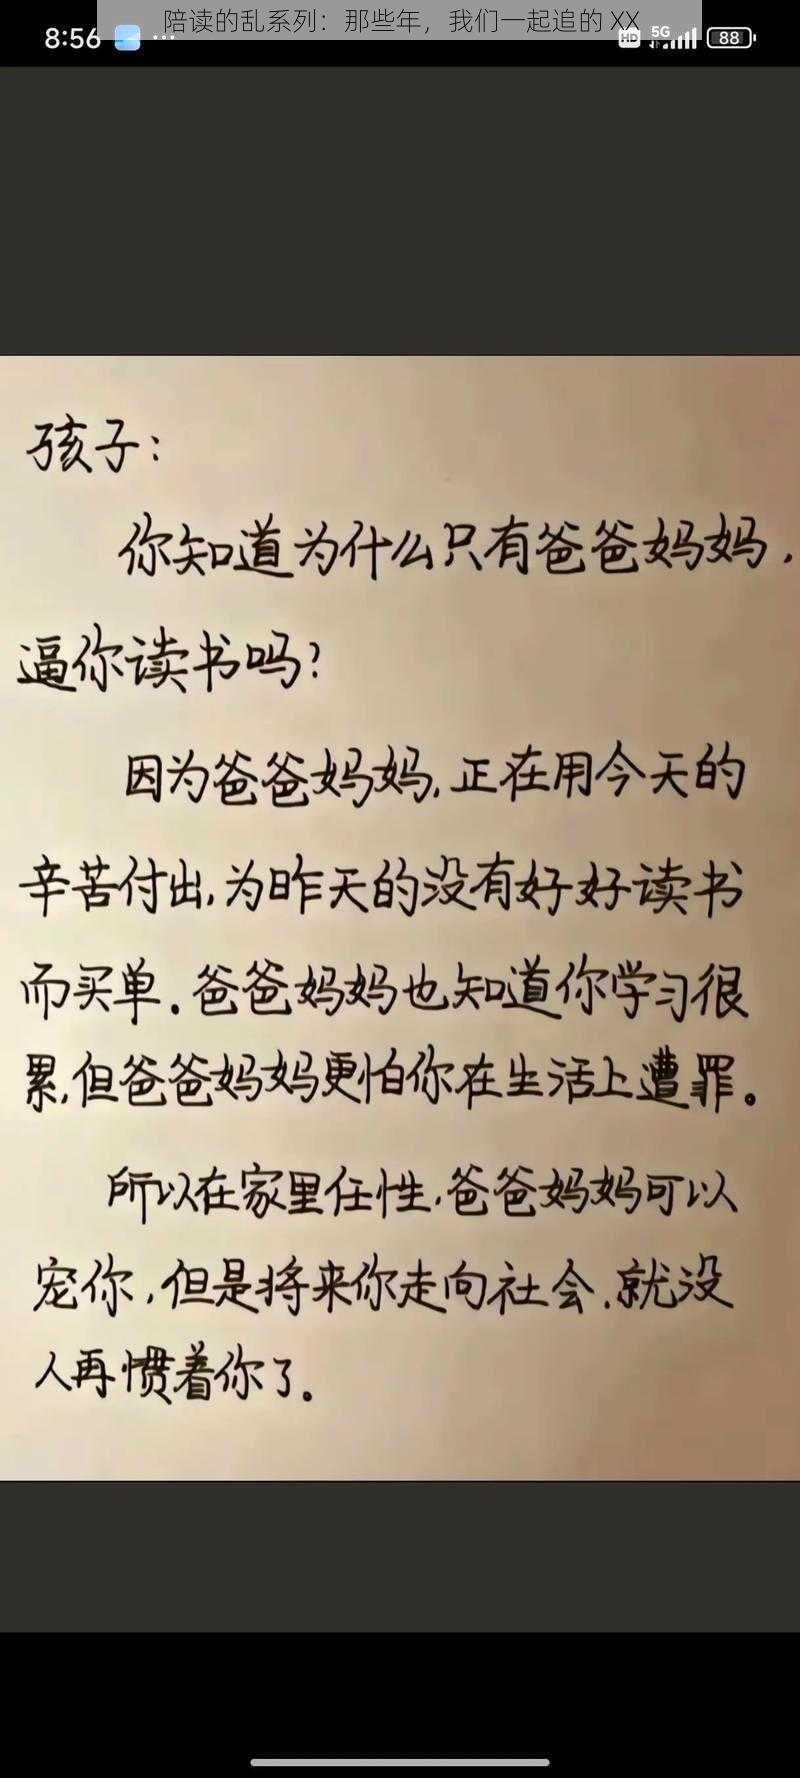 陪读的乱系列：那些年，我们一起追的 XX
8:56
HD 5G 88
孩子：
你知道为什么只有爸爸妈妈，
逼你读书吗？
因为爸爸妈妈，正在用今天的
辛苦付出，为昨天的没有好好读书
而买单。爸爸妈妈也知道你学习很
累，但爸爸妈妈更怕你在生活上遭罪。
所以在家里任性，爸爸妈妈可以
宠你，但是将来你走向社会，就没
人再惯着你了。